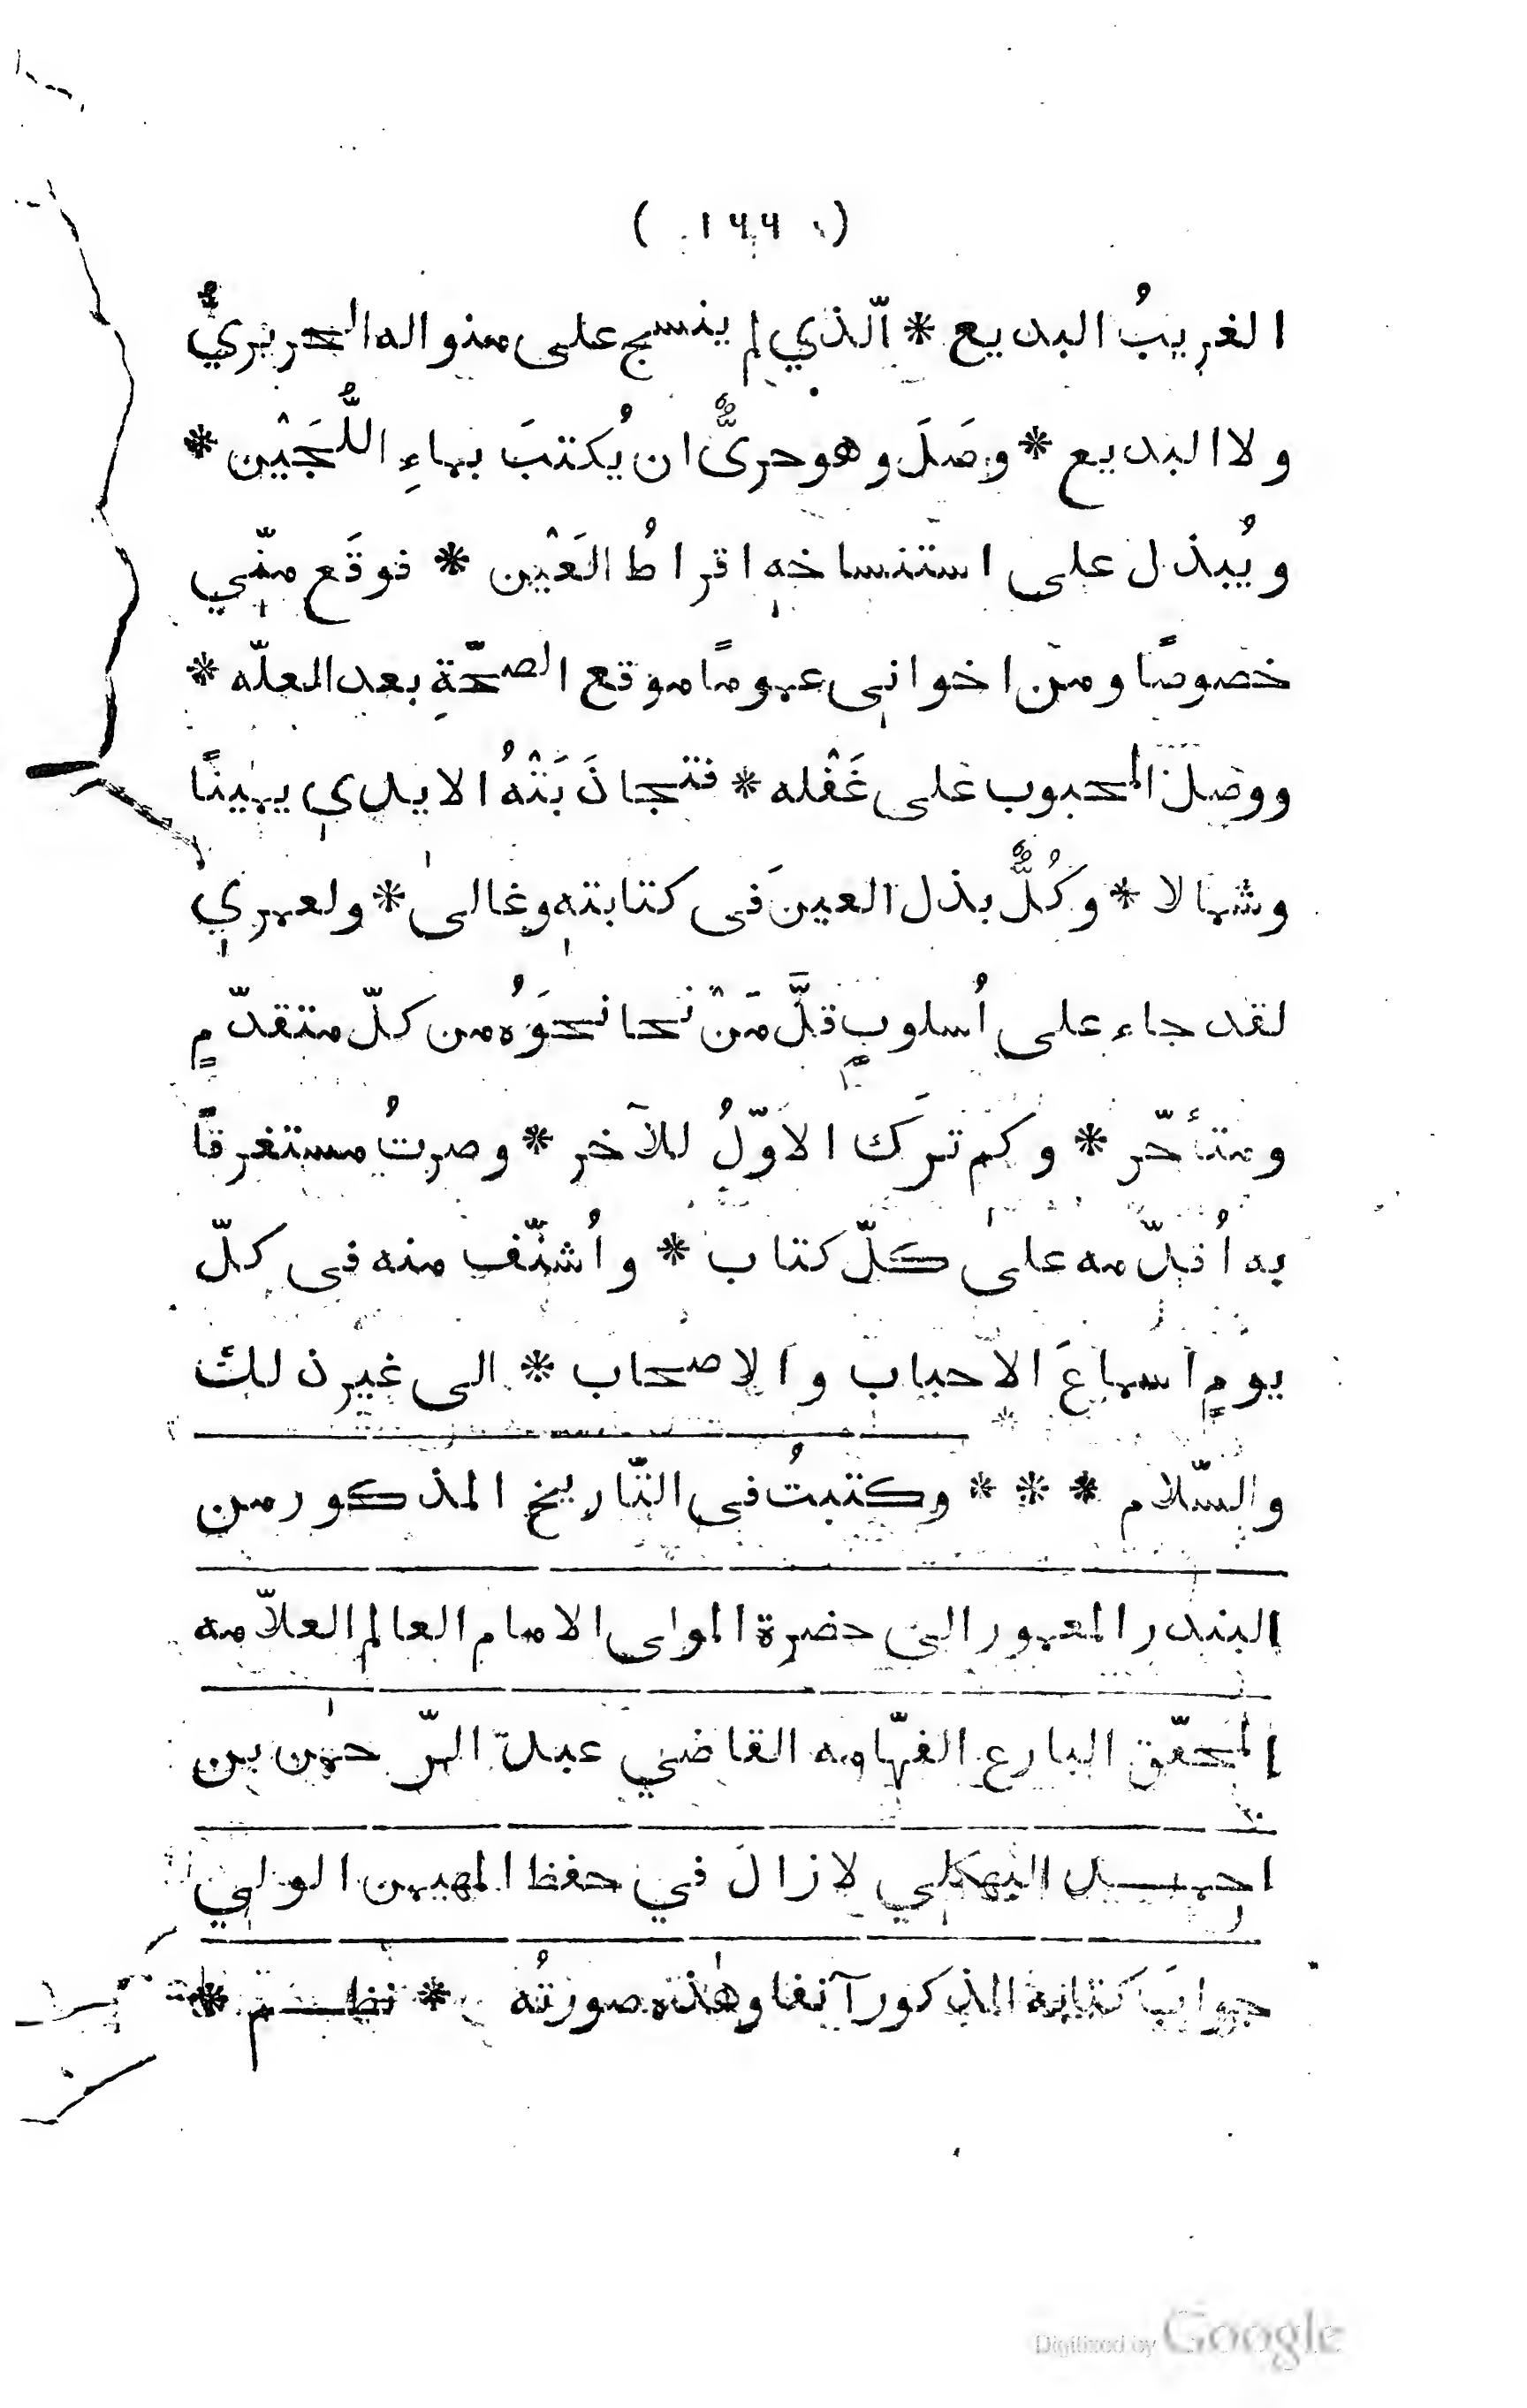 ( ١٦٦ )
الغريبُ البديع * الّذي لم ينسج على منواله الحريريُّ
ولا البديع * وصَلَ وهو حريٌّ ان يُكتبَ بماءِ اللُّجَيْن *
ويُبذل على استنساخهٖ اقراطُ العَيْن * فوقَع منّي
خصوصًا ومن اخوانى عمومًا موقع الصحّةِ بعد العلّه *
ووصل المحبوب على غَفْله * فتجاذَبَتْهُ الايدي يمينًا
وشمالا * وكُلٌّ بذل العينَ فى كتابتهٖ وغالىٰ * ولعمري
لقد جاء على اُسلوبٍ قلَّ مَنْ نحا نحوَهُ من كلّ متقدّمٍ
ومتأخّر * وكم ترَك الاوّلُ للآخر * وصرتُ مستغرقًا
به اُقدّمه علىٰ كلّ كتاب * واُشنّف منه فى كلّ
يومٍ اسماعَ الاحباب والاصحاب * الى غير ذلك
والسّلام * * * وكتبتُ فى التّاريخ المذكور من
البندر المعمور الى حضرة المولى الامام العالم العلاّمه
المحقّق البارع الفهّامه القاضي عبد الرّحمٰن بن
احمد البهكلي لازالَ في حفظ المهيمن الولي
جوابَ كتابه المذكور آنفا وهٰذه صورتُه * نظم *
Digitized by Google